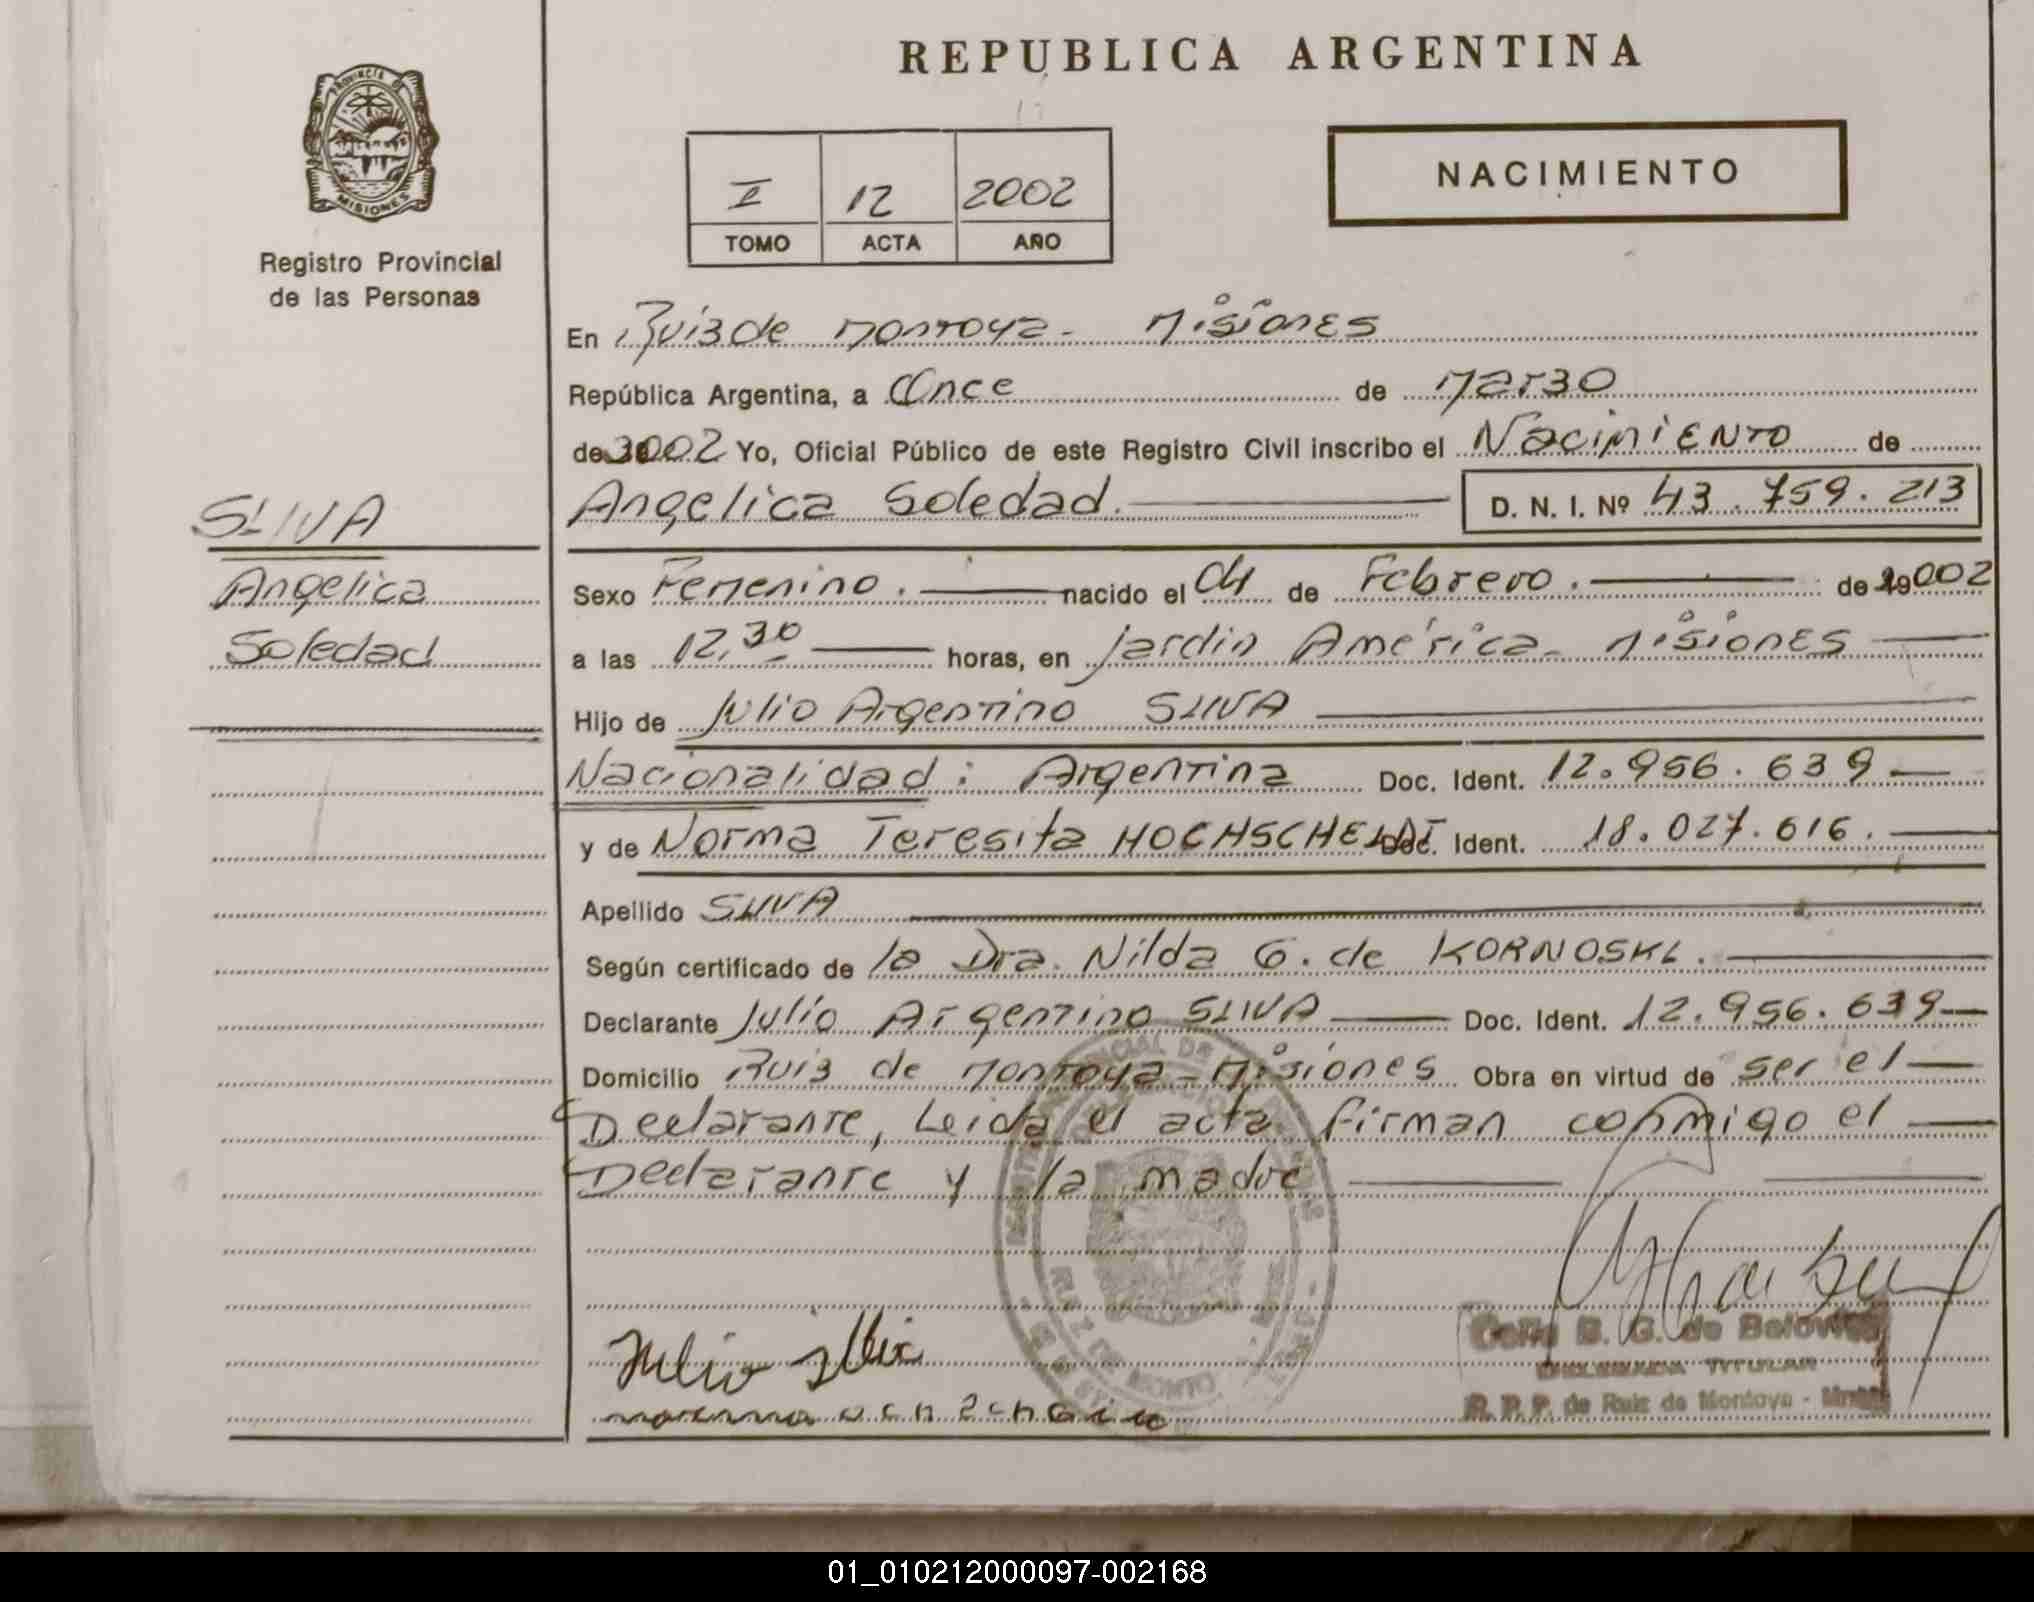 REPUBLICA ARGENTINA
PROVINCIA DE
MISIONES
Registro Provincial
de las Personas
I 12 2002
TOMO ACTA AÑO
NACIMIENTO
En Ruiz de Montoya - Misiones
República Argentina, a Once de Marzo
de 2002 Yo, Oficial Público de este Registro Civil inscribo el Nacimiento de
Angelica Soledad. D. N. I. Nº 43.759.213
SILVA
Angelica
Soledad
Sexo Femenino. nacido el 04 de Febrero. de 2002
a las 12,30 horas, en Jardin América - Misiones
Hijo de Julio Argentino SILVA
Nacionalidad: Argentina Doc. Ident. 12.956.639
y de Norma Teresita Doc. Ident. 18.027.616.
Apellido SILVA
Según certificado de la Dra. Nilda G. de KORNOSKI.
Declarante Julio Argentino SILVA Doc. Ident. 12.956.639
Domicilio Ruiz de Montoya - Misiones Obra en virtud de ser el
Declarante, Leida el acta firman conmigo el
Declarante y la madre
Julio
B. G. de
TITULAR
R. P. P. de Ruiz de Montoya -
01_010212000097-002168